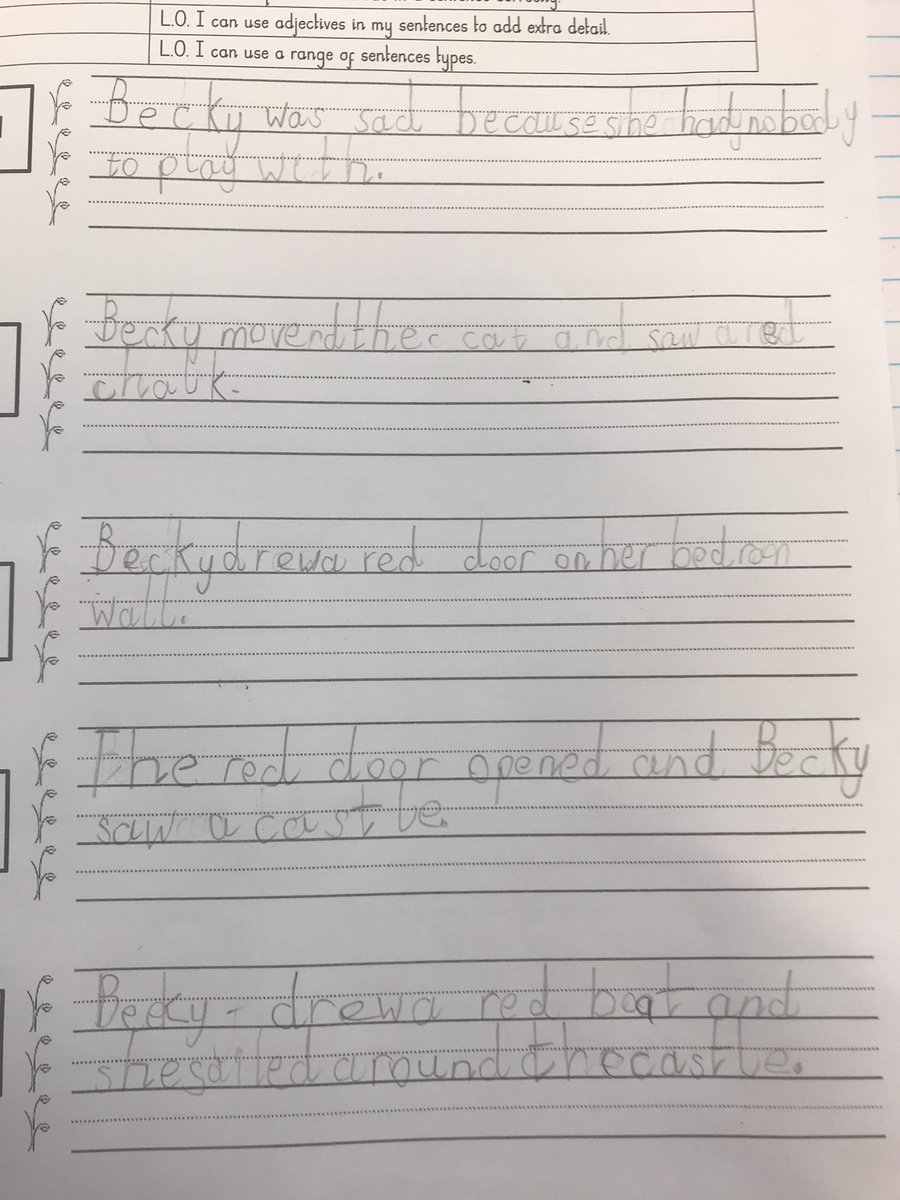 L.O. I can use adjectives in my sentences to add extra detail.
L.O. I can use a range of sentences types.
Becky was sad because she had nobody
to play with.
Becky movend the cat and saw a red
chalk.
Becky drew a red door on her bedroon
wall.
The red door opened and Becky
saw a castle.
Becky - drew a red boat and
she sailed around the castle.